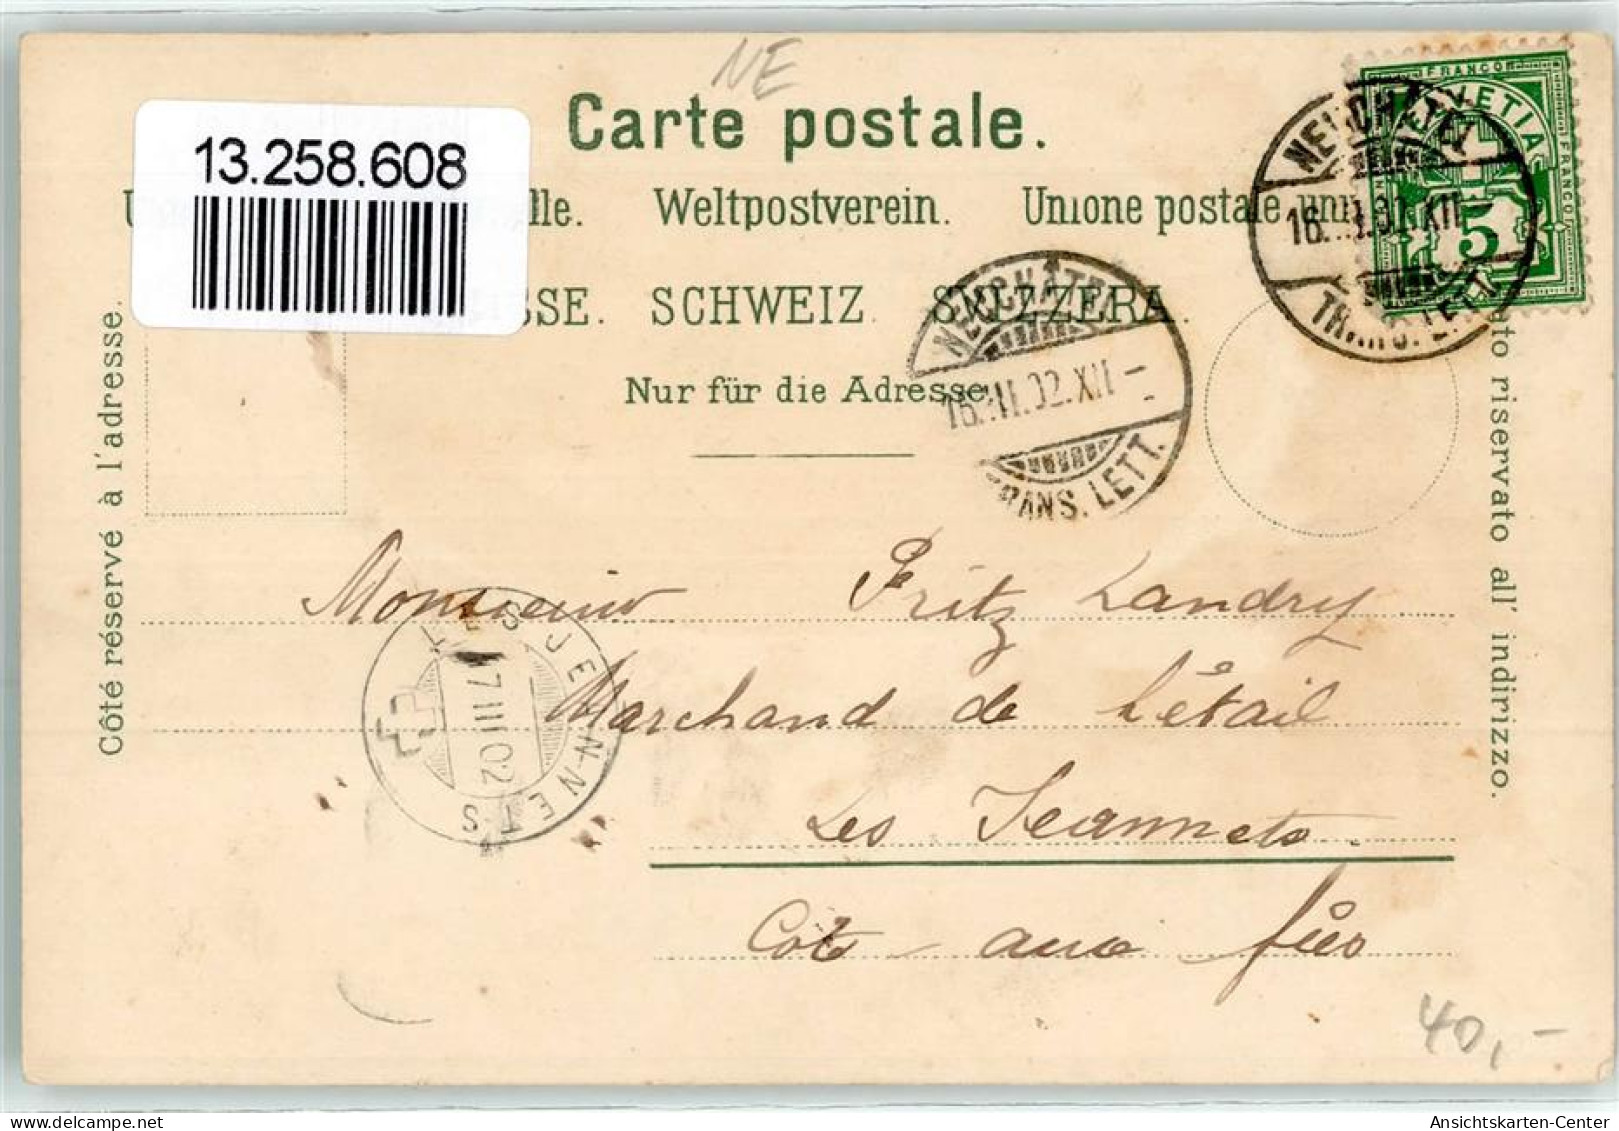 NE
Carte postale.
13.258.608
lle. Weltpostverein. Unione postale
SSE. SCHWEIZ. SVIZZERA.
Nur für die Adresse.
Côté réservé à l'adresse.
riservato all' indirizzo.
FRANCO
HELVETIA
FRANCO
5
NEUCHÂTEL
TRANS. LETT.
NEUCHÂTEL
16.III.02.XII-
TRANS. LETT.
LES JEANNETS
17 III 02
Monsieur Fritz Landry
Marchand de Détail
Les Jeannets
Côte aux fées
40,-
Ansichtskarten-Center